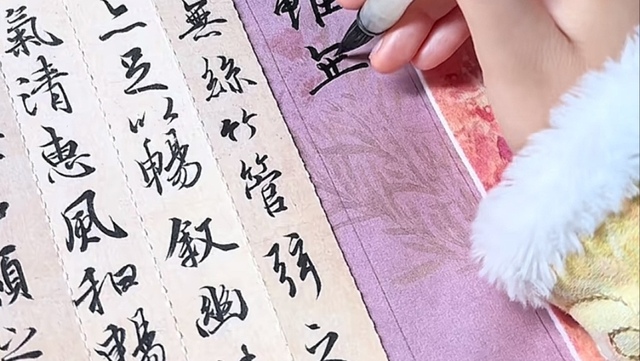 雖
無絲竹管弦之
足以暢叙幽
氣清惠風和暢